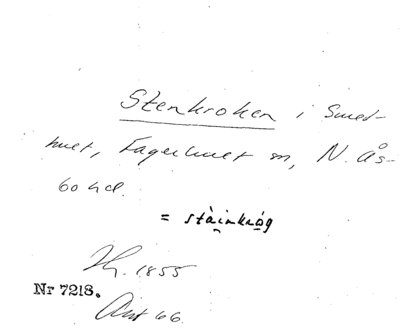 Stenkroken i Smed-
hult, Fagerhult sn, N. Ås-
bo hd.
= stàinkrǫ́g
Hg. 1855
Nr 7218.
66